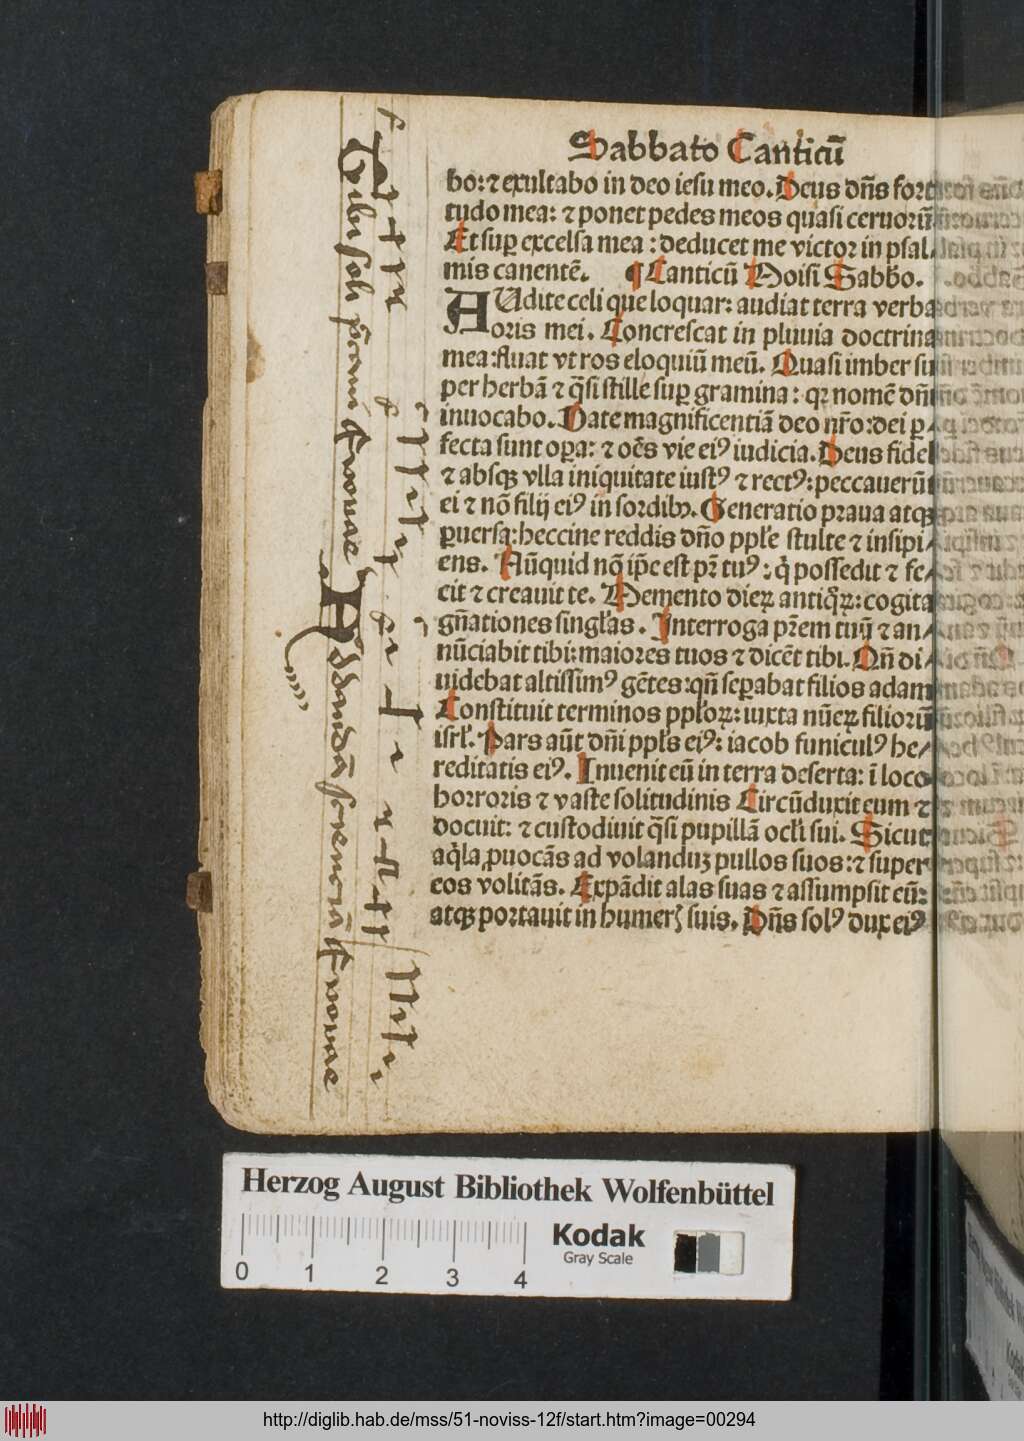 Sabbato Canticū
bo: ⁊ exultabo in deo iesu meo. Deus dn̄s forti
tudo mea: ⁊ ponet pedes meos quasi ceruorū
Et suꝑ excelsa mea : deducet me victor in psal⸗
mis canentē. ¶ Canticū Moisi Sabbo.
AUdite celi que loquar: audiat terra verba
oris mei. Concrescat in pluuia doctrina
mea: fluat vt ros eloquiū meū. Quasi imber su
per herbā ⁊ q̄si stille suꝑ gramina: qꝛ nomē dn̄i
inuocabo. Date magnificentiā deo nr̄o: dei ꝑ⸗
fecta sunt oꝑa: ⁊ oēs vie eiꝰ iudicia. Deus fidel
⁊ absqꝫ vlla iniquitate iustꝰ ⁊ rectꝰ: peccauerūt
ei ⁊ nō filij eiꝰ in sordibꝰ. Generatio praua atqꝫ
ꝑuersa: heccine reddis dn̄o ppl̄e stulte ⁊ insipi⸗
ens. Nūquid nō ip̄e est pr̄ tuꝰ: q̇ possedit ⁊ fe⸗
cit ⁊ creauit te. Memento dieꝝ antiq̄ꝝ: cogita
gn̄ationes singl̄as. Interroga pr̄em tuū ⁊ an⸗
nūciabit tibi: maiores tuos ⁊ dicēt tibi. Qn̄ di⸗
uidebat altissimꝰ gētes: qn̄ seꝑabat filios adam
Constituit terminos ppl̄oꝝ: iuxta nūeꝝ filiorū
isrl̄. Pars aūt dn̄i ppl̄s eiꝰ: iacob funiculꝰ he⸗
reditatis eiꝰ. Inuenit eū in terra deserta: ī loco
horroris ⁊ vaste solitudinis Circūduxit eum ⁊
docuit: ⁊ custodiuit q̄si pupillā ocl̄i sui. Sicut
aq̇la ꝓuocās ad volanduꝫ pullos suos: ⁊ super
eos volitās. Expādit alas suas ⁊ assumpsit eū:
atqꝫ portauit in humerꝭ suis. Dn̄s solꝰ dux eiꝰ
Tibi soli pc̄caui Evovae
Evovae
Herzog August Bibliothek Wolfenbüttel
Kodak
Gray Scale
0 1 2 3 4
http://diglib.hab.de/mss/51-noviss-12f/start.htm?image=00294